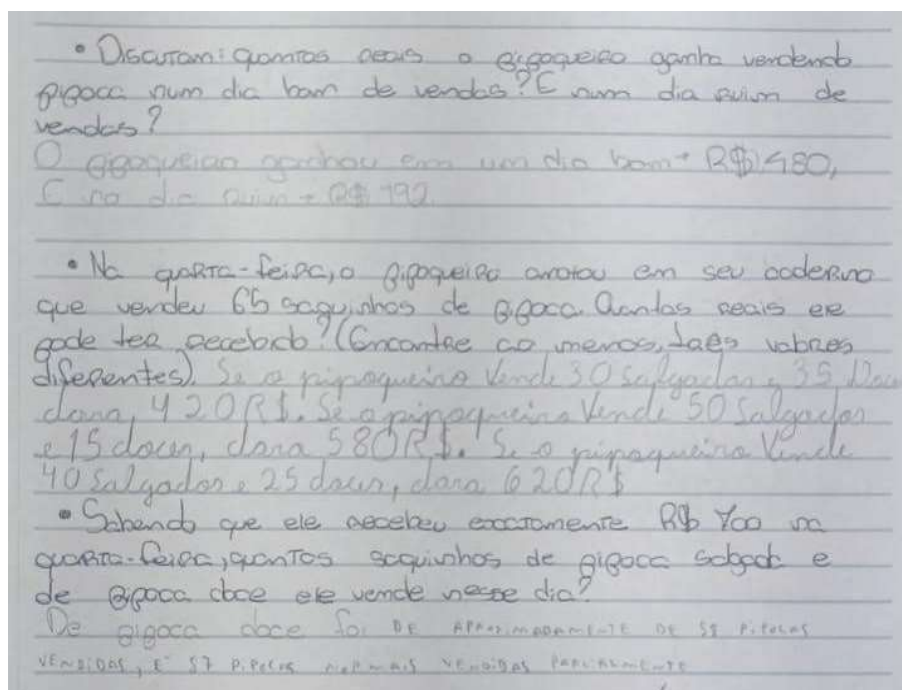 • Discutam: quantos reais o pipoqueiro ganha vendendo
pipoca num dia bom de vendas? E num dia ruim de
vendas?
O pipoqueiro ganhou em um dia bom → R$ 1480,
E no dia ruim → R$ 792
• Na quarta-feira, o pipoqueiro anotou em seu caderno
que vendeu 65 saquinhos de pipoca. Quantos reais ele
pode ter recebido? (Encontre ao menos, três valores
diferentes). Se o pipoqueiro Vende 30 Salgados e 35 Doces
dara, 420R$. Se o pipoqueiro Vende 50 Salgados
e 15 doces, dara 580R$. Se o pipoqueiro Vende
40 Salgados e 25 doces, dara 620R$
• Sabendo que ele recebeu exatamente R$ 700 na
quarta-feira, quantos saquinhos de pipoca salgada e
de pipoca doce ele vende nesse dia?
De pipoca doce foi DE APROXIMADAMENTE DE 58 PIPOCAS
VENDIDAS, E 57 PIPOCAS VENDIDAS PARCIALMENTE